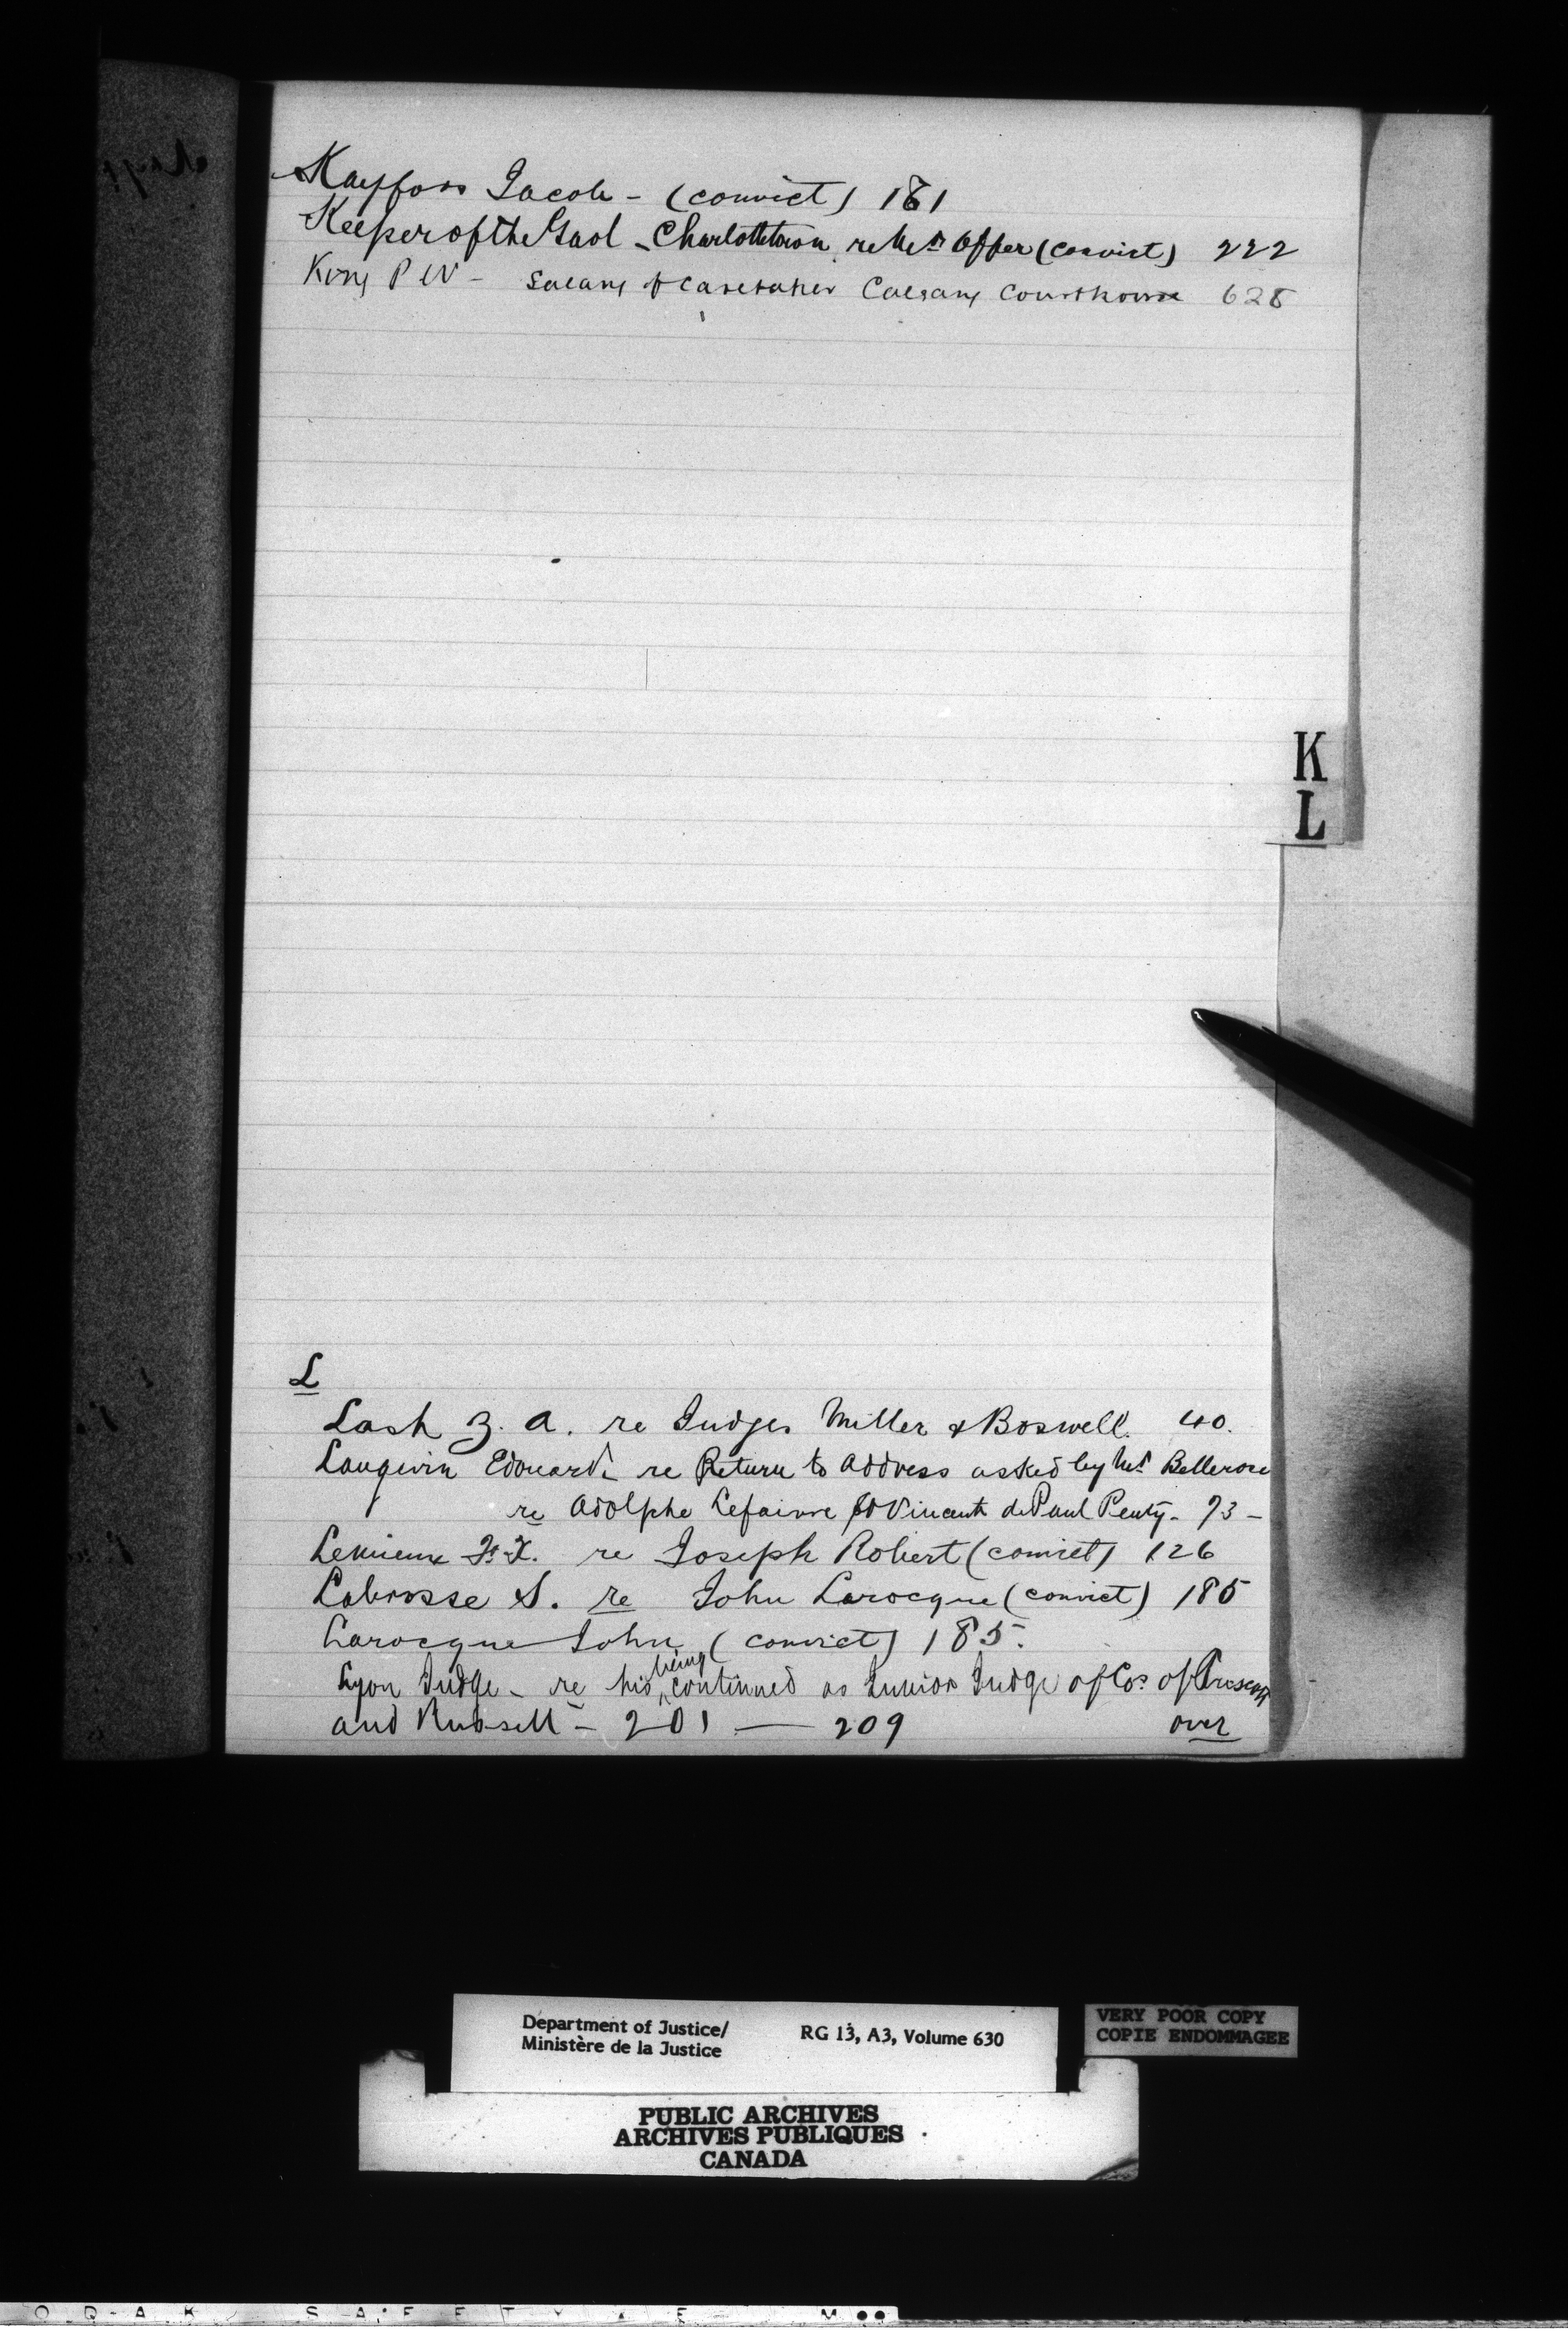 Kayfoss Jacob - (convict) 161
Keeper of the Gaol - Charlottetown, re Offer (convict) 222
King P W - Salary of Caretaker Calgary Courthouse 628
K
L
L
Lash Z. A. re Judges Miller & Boswell. 40.
Langevin Edouard. re Return to Address asked by Mr Bellerose
re Adolphe Lefaivre St Vincent de Paul Penty - 73 -
Lemieux F. X. re Joseph Robert (convict) 126
Labrosse S. re John Larocque (convict) 185
Larocque John (convict) 185.
Lyon Judge - re his being continued as Junior Judge of Cos. of Prescott
and Russell - 201 — 209 over
Department of Justice/ RG 13, A3, Volume 630
Ministère de la Justice
VERY POOR COPY
COPIE ENDOMMAGEE
PUBLIC ARCHIVES
ARCHIVES PUBLIQUES
CANADA